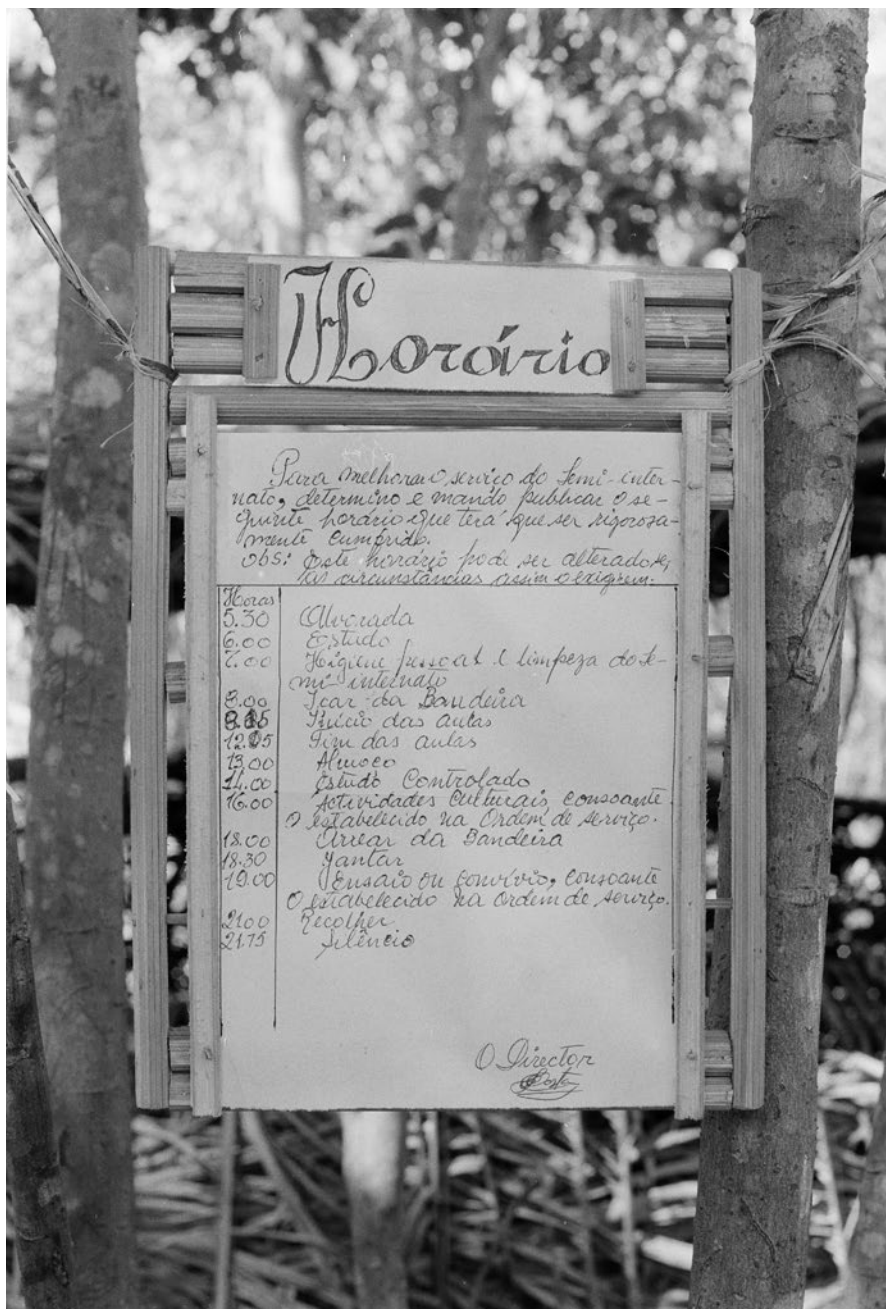 Horário
Para melhorar o serviço do Semi-inter-
nato, determino e mando publicar o se-
guinte horário que terá que ser rigorosa-
mente cumprido.
OBS: Este horário pode ser alterado se,
as circunstâncias assim o exigirem.
Horas
5.30 Alvorada
6.00 Estudo
7.00 Higiene pessoal e limpeza do Se-
mi-internato
8.00 Içar da Bandeira
8.15 Início das aulas
12.05 Fim das aulas
13.00 Almoço
14.00 Estudo Controlado
16.00 Actividades Culturais, consoante
O estabelecido na Ordem de serviço.
18.00 Arrear da Bandeira
18.30 Jantar
19.00 Ensaio ou convívio, consoante
O estabelecido na Ordem de serviço.
21.00 Recolher
21.15 Silêncio
O Director